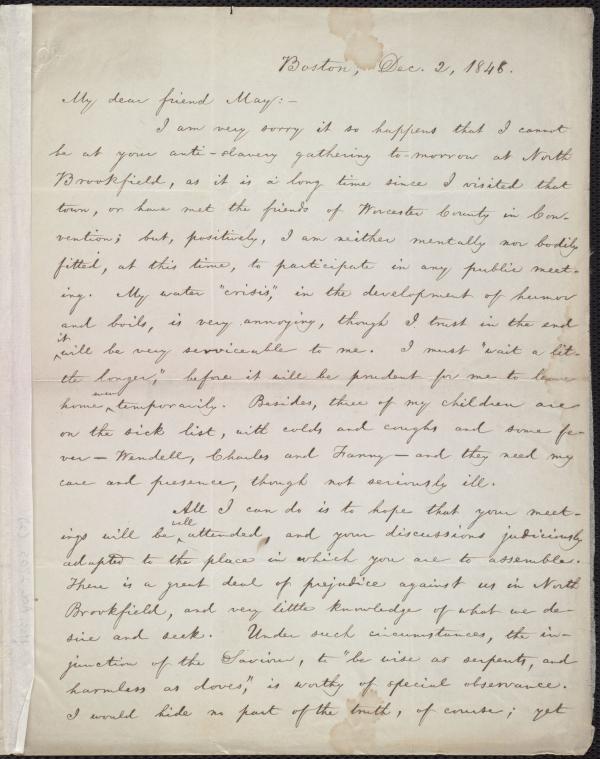 Boston, Dec. 2, 1848.
My dear friend May:—
I am very sorry it so happens that I cannot
be at your anti-slavery gathering to-morrow at North
Brookfield, as it is a long time since I visited that
town, or have met the friends of Worcester County in Con-
vention; but, positively, I am neither mentally nor bodily
fitted, at this time, to participate in any public meet-
ing. My water "crisis," in the development of humor
and boils, is very annoying, though I trust in the end
it
will be very serviceable to me. I must "wait a lit-
tle longer," before it will be prudent for me to leave
home even temporarily. Besides, three of my children are
on the sick list, with colds and coughs and some fe-
ver — Wendell, Charles and Fanny — and they need my
care and presence, though not seriously ill.
All I can do is to hope that your meet-
ings will be well attended, and your discussions judiciously
adapted to the place in which you are to assemble.
There is a great deal of prejudice against us in North
Brookfield, and very little knowledge of what we de-
sire and seek. Under such circumstances, the in-
junction of the Saviour, to "be wise as serpents, and
harmless as doves," is worthy of special observance.
I would hide no part of the truth, of course; yet